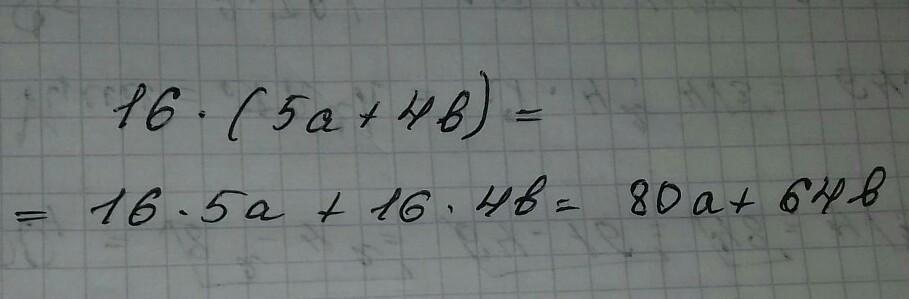 16 · (5a + 4b) =
= 16 · 5a + 16 · 4b = 80a + 64b